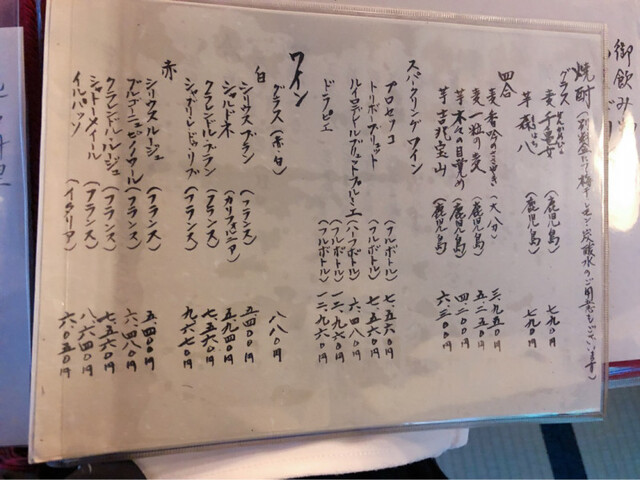 御飲み
焼酎
グラス
麦 千亀女 (鹿児島) 七九〇円
芋 蔵八 (鹿児島) 七九〇円
四合
麦 杏吟のささやき (大分) 三、九五〇円
麦 一粒の麦 (鹿児島) 五、二五〇円
芋 木々の目覚め (鹿児島) 四、二〇〇円
芋 吉兆宝山 (鹿児島) 六、三〇〇円
スパークリングワイン
プロセッコ (フルボトル) 七、五六〇円
トーボーブリュット (フルボトル) 七、五六〇円
(ハーフボトル) 六、四八〇円
(フルボトル) 一二、九六〇円
ドラピエ (フルボトル) 一二、九六〇円
ワイン
グラス (赤・白) 八八〇円
白
シリウスブラン (フランス) 五、四〇〇円
シャルドネ (カリフォルニア) 五、九四〇円
クランドル・ブラン (フランス) 七、五六〇円
シャボリー (フランス) 九、六七〇円
赤
シリウスルージュ (フランス) 五、四〇〇円
ブルゴーニュピノノワール (フランス) 六、四八〇円
クランドル・ルージュ (フランス) 七、五六〇円
シャトーメイール (フランス) 八、六四〇円
イルパッソ (イタリア) 六、〇五〇円